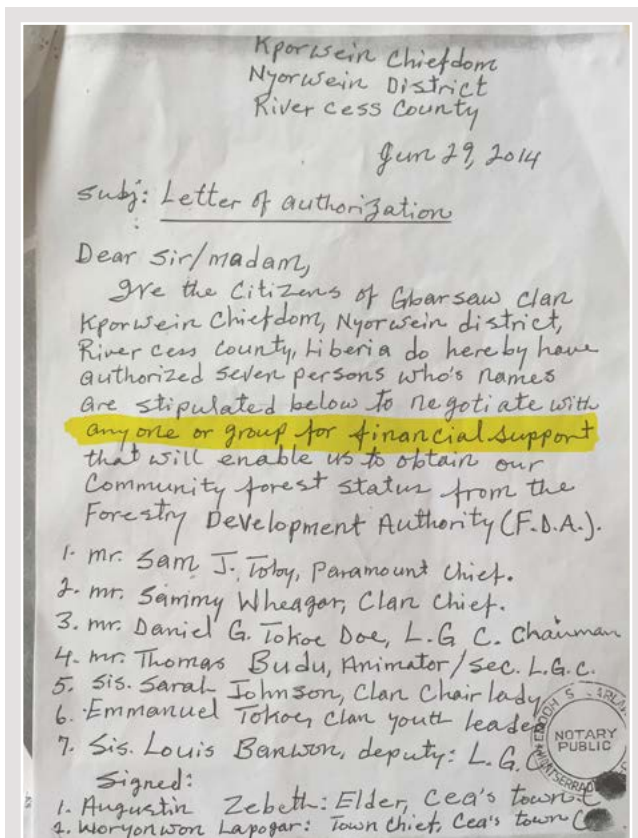 Kporwein Chiefdom
Nyorwein District
River cess County
Jun 29, 2014
Subj: Letter of authorization
Dear Sir/madam,
We the Citizens of Gbarsaw clan
Kporwein Chiefdom, Nyorwein district,
River cess County, Liberia do hereby have
authorized seven persons who's names
are stipulated below to negotiate with
any one or group for financial support
that will enable us to obtain our
Community forest status from the
Forestry Development Authority (F.D.A.).
1. mr. Sam J. Toby, Paramount Chief.
2. mr. Sammy Wheagar, Clan Chief.
3. mr. Daniel G. Tokoe Doe, L.G C. Chairman
4. mr. Thomas Budu, Animator/sec. L.G.C.
5. Sis. Sarah Johnson, Clan Chair lady
6. Emmanuel Tokoe, Clan youth leader
7. Sis. Louis Banwon, deputy: L.G.C
NOTARY
PUBLIC
Signed:
1. Augustin Zebeth: Elder, Cea's town
2. Woryonwon Lapogar: Town Chief, Cea's town